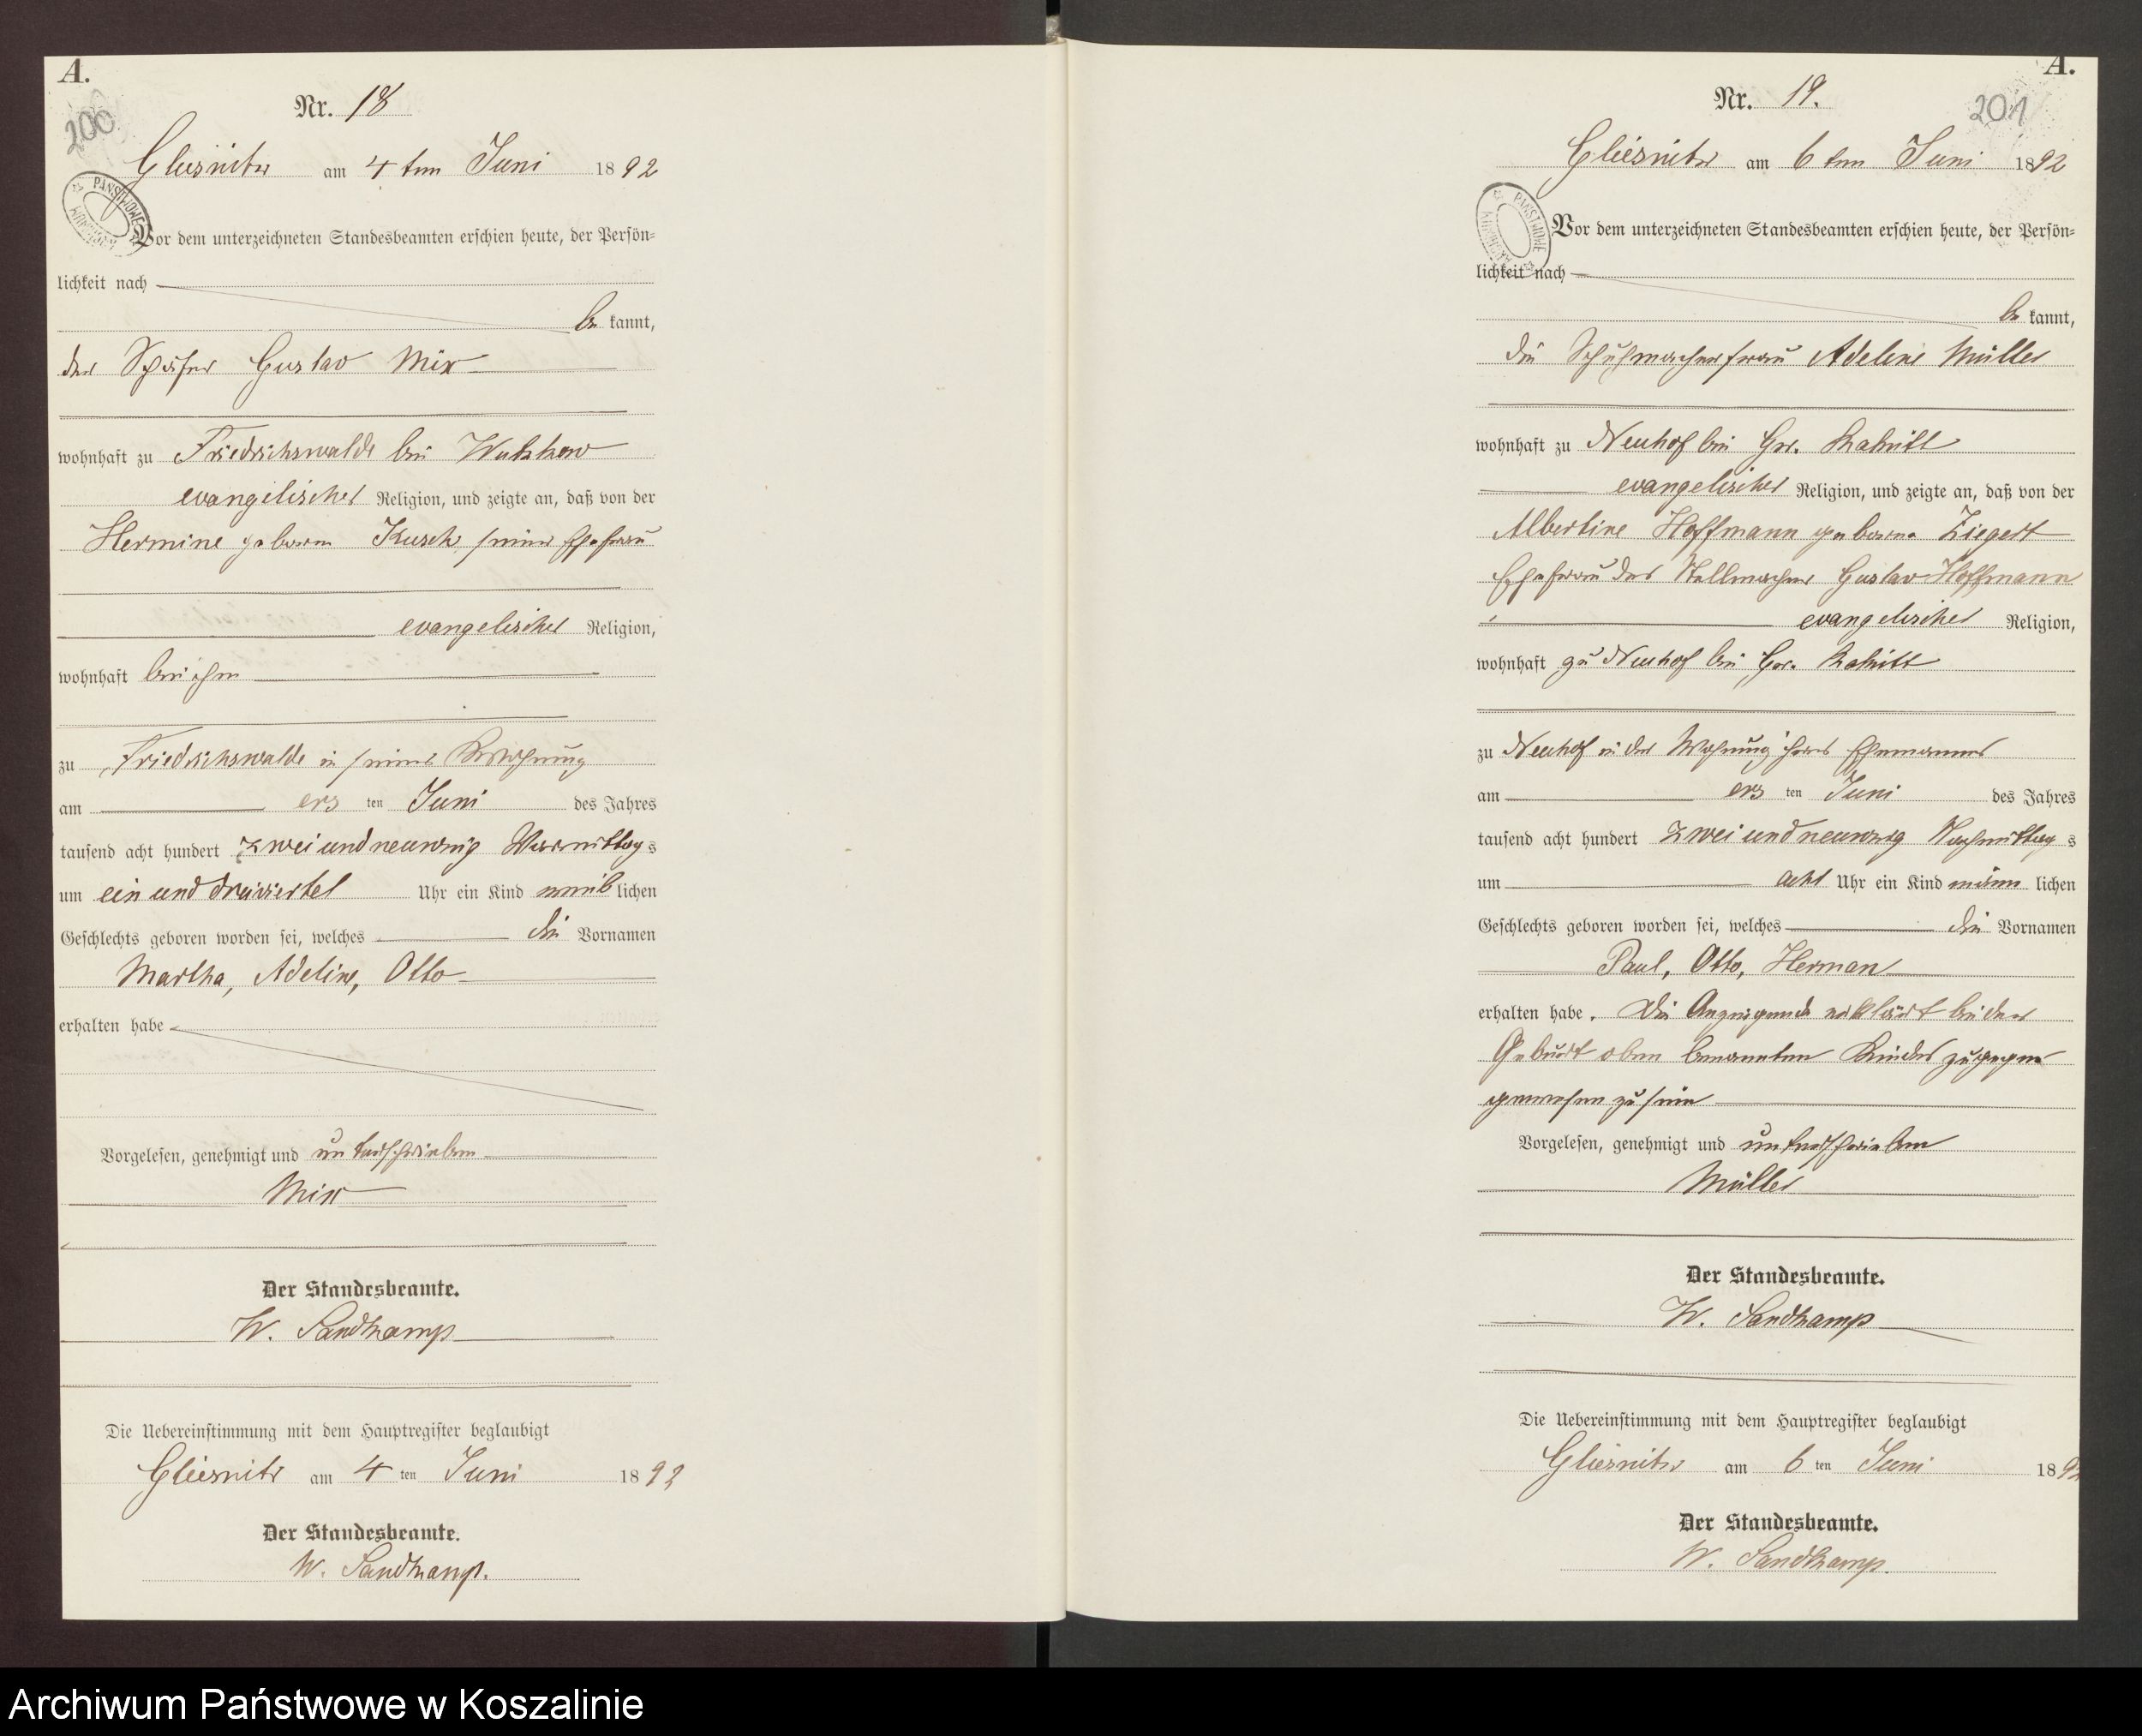 A.
200
Nr. 18
Gliesnitz am 4 ten Juni 1892
PAŃSTWOWE
Vor dem unterzeichneten Standesbeamten erschien heute, der Persön-
lichkeit nach
be kannt,
der Schäfer Gustav Mix
wohnhaft zu Friedrichswalde bei Wutzkow
evangelischer Religion, und zeigte an, daß von der
Hermine geborene Kusch, seiner Ehefrau
evangelischer Religion,
wohnhaft bei ihm
zu Friedrichswalde in seiner Wohnung
am ers ten Juni des Jahres
tausend acht hundert zwei und neunzig Vormittags
um ein und dreiviertel Uhr ein Kind weiblichen
Geschlechts geboren worden sei, welches die Vornamen
Martha, Adeline, Otto
erhalten habe
Vorgelesen, genehmigt und unterschrieben
Mix
Der Standesbeamte.
W. Sandkamp
Die Uebereinstimmung mit dem Hauptregister beglaubigt
Gliesnitz am 4 ten Juni 1892
Der Standesbeamte.
W. Sandkamp.
A.
Nr. 19.
201
Gliesnitz am 6 ten Juni 1892
PAŃSTWOWE
Vor dem unterzeichneten Standesbeamten erschien heute, der Persön-
lichkeit nach
be kannt,
die Schuhmacherfrau Adeline Müller
wohnhaft zu Neuhof bei Gr. Rakitt
evangelischer Religion, und zeigte an, daß von der
Albertine Hoffmann geborne Ziegert
Ehefrau des Stellmacher Gustav Hoffmann
evangelischer Religion,
wohnhaft zu Neuhof bei Gr. Rakitt
zu Neuhof in der Wohnung ihres Ehemannes
am ers ten Juni des Jahres
tausend acht hundert zwei und neunzig Nachmittags
um acht Uhr ein Kind männ lichen
Geschlechts geboren worden sei, welches die Vornamen
Paul, Otto, Herman
erhalten habe. Die Anzeigende erklärt bei der
Geburt oben benannten Kindes zugegen
gewesen zu sein
Vorgelesen, genehmigt und unterschrieben
Müller
Der Standesbeamte.
W. Sandkamp
Die Uebereinstimmung mit dem Hauptregister beglaubigt
Gliesnitz am 6 ten Juni 1892
Der Standesbeamte.
W. Sandkamp.
Archiwum Państwowe w Koszalinie